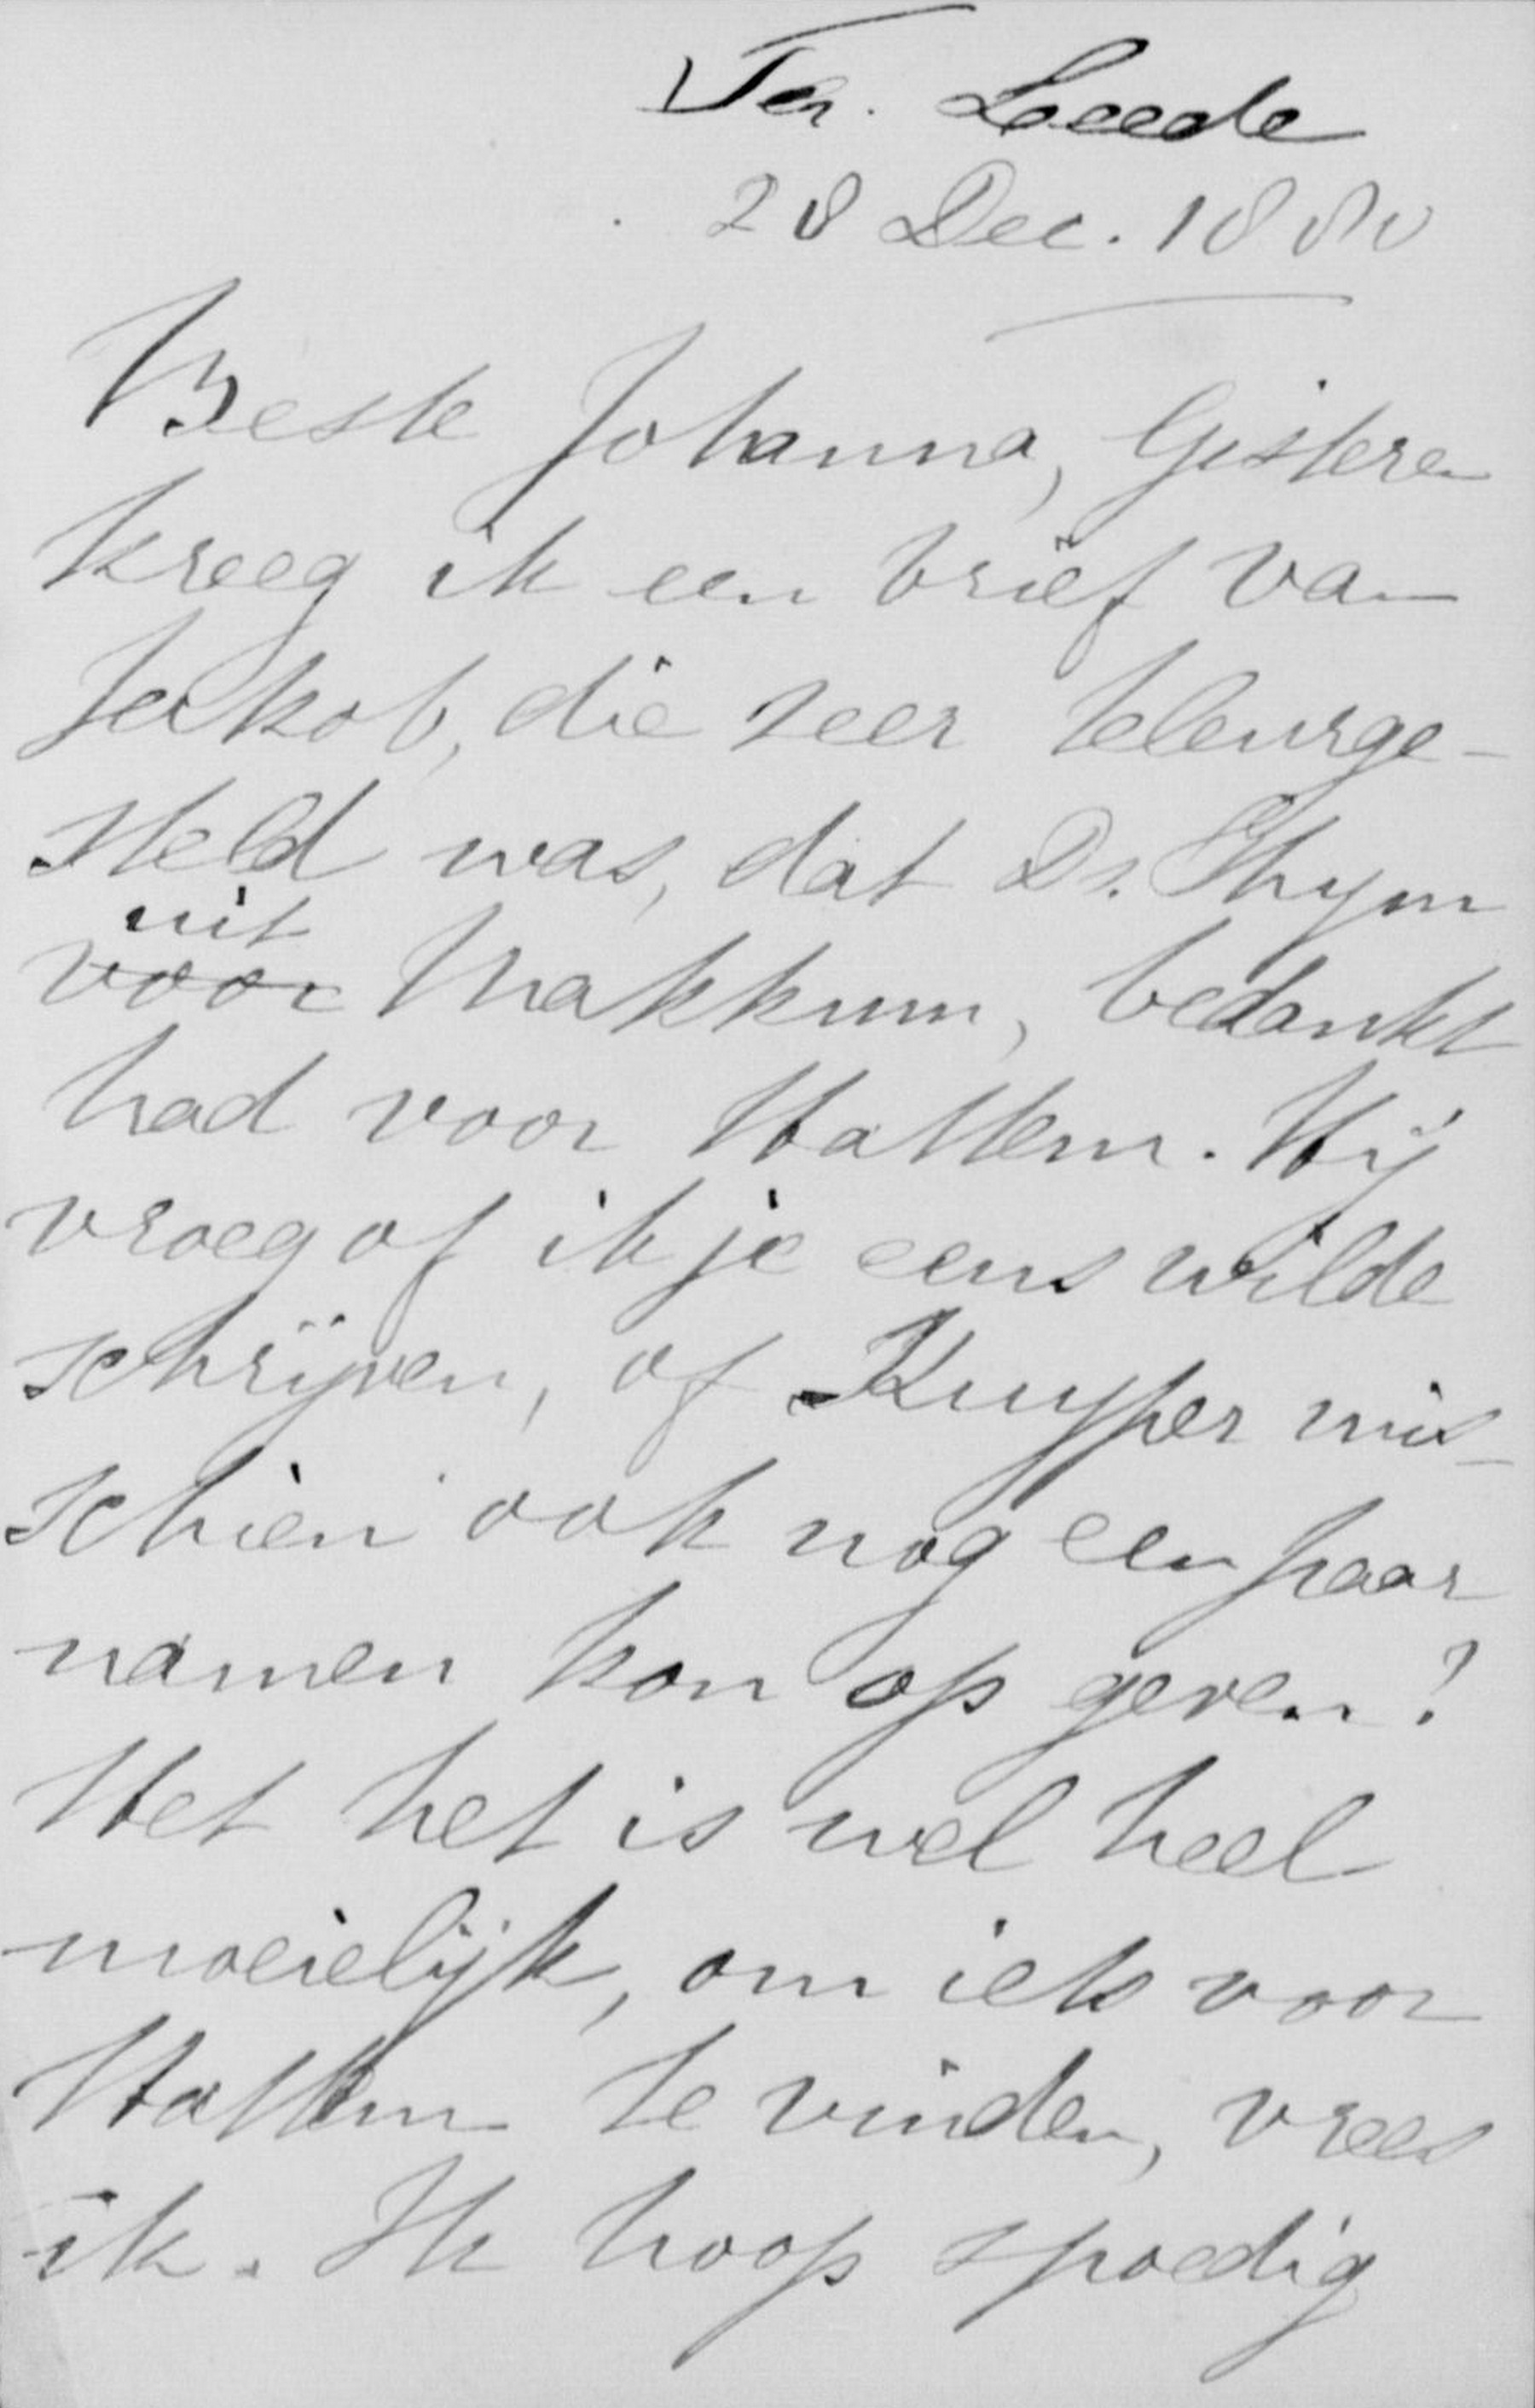 Ter. Leede
28 Dec. 1880
Beste Johanna, Gisteren
kreeg ik een brief van
Jakob, die zeer teleurge-
steld was, dat Ds. Thym
uit
voor Makkum, bedankt
had voor Hattem. Hij
vroeg of ik je eens wilde
schrijven, of Kuyper mis-
schien ook nog een paar
namen kon op geven?
Het het is wel heel
moeielijk, om iets voor
Hattem te vinden, vrees
ik. Ik hoop spoedig